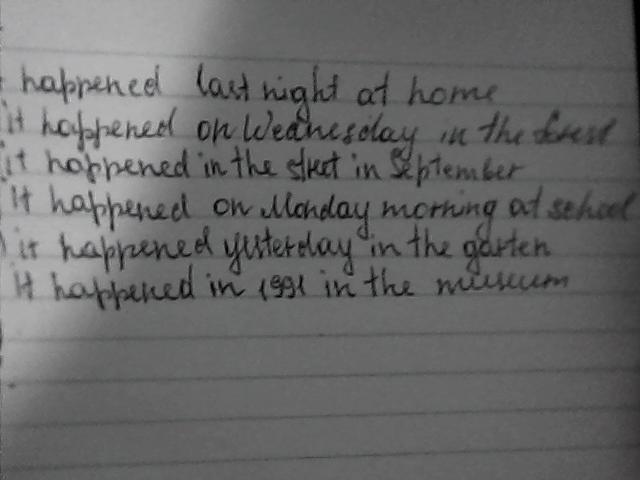 happened last night at home
it happened on Wednesday in the forest
it happened in the street in September
It happened on Monday morning at school
it happened yesterday in the garten
It happened in 1991 in the museum